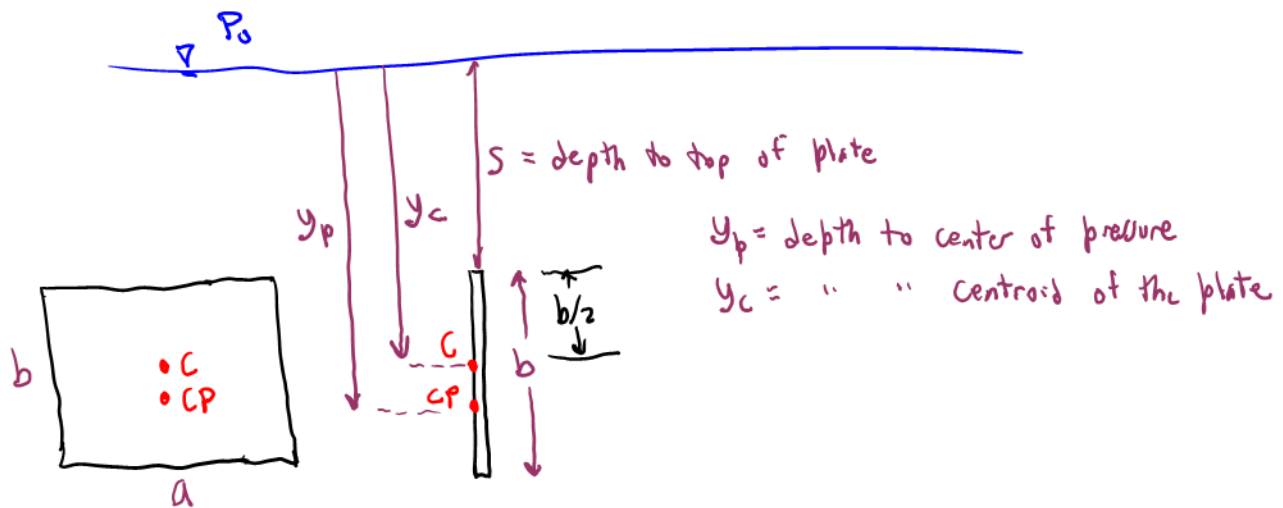 P₀
S = depth to top of plate
y_p
y_c
y_p = depth to center of pressure
y_c = " " centroid of the plate
b/2
C
CP
b
b
C
CP
a